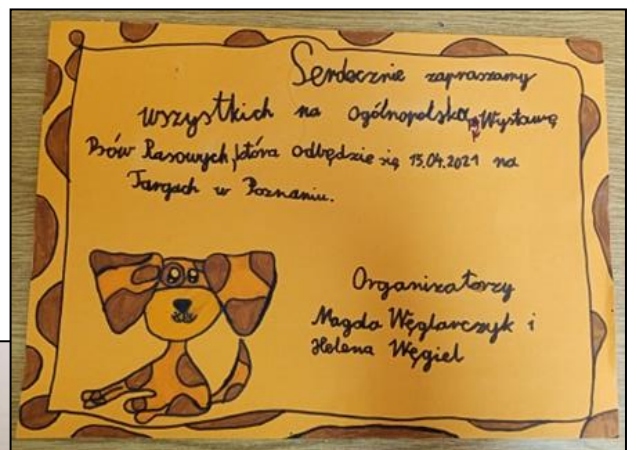 Serdecznie zapraszamy
wszystkich na ogólnopolską Wystawę
Psów Rasowych, która odbędzie się 15.04.2021 na
Targach w Poznaniu.
Organizatorzy
Magda Węglarczyk i
Helena Węgiel